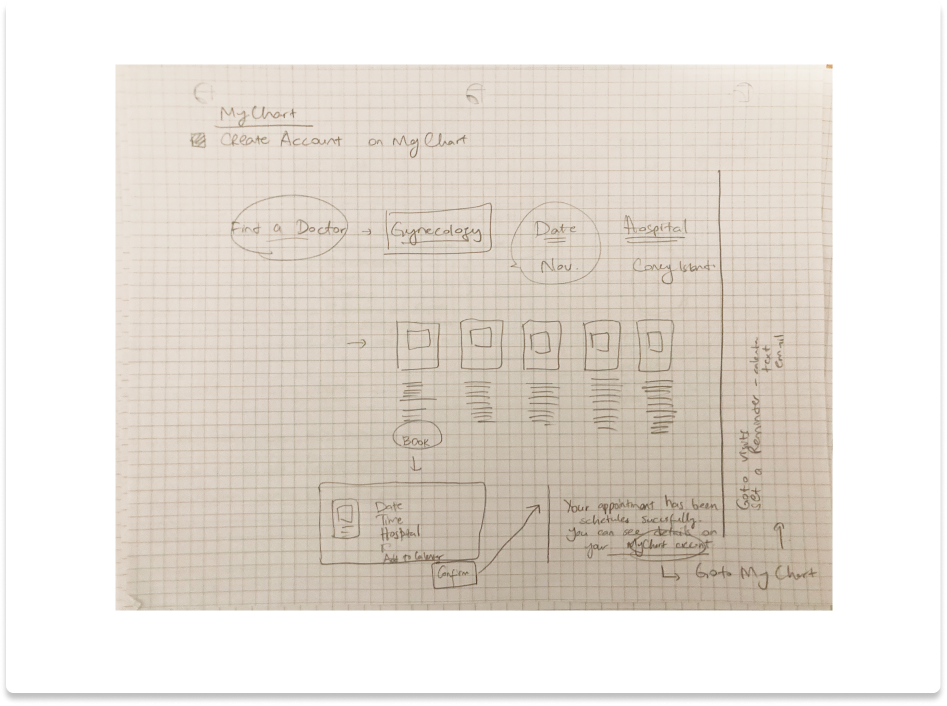 My Chart
Create Account on My Chart
Find a Doctor → Gynecology
Date
Nov.
Hospital
Coney Island
→
BOOK
↓
Date
Time
Hospital
Add to Calendar
Confirm
Your appointment has been
schedules sucessfully.
You can see details on
your MyChart account
↳ Goto My Chart
Goto visits
Set a Reminder -
text
email